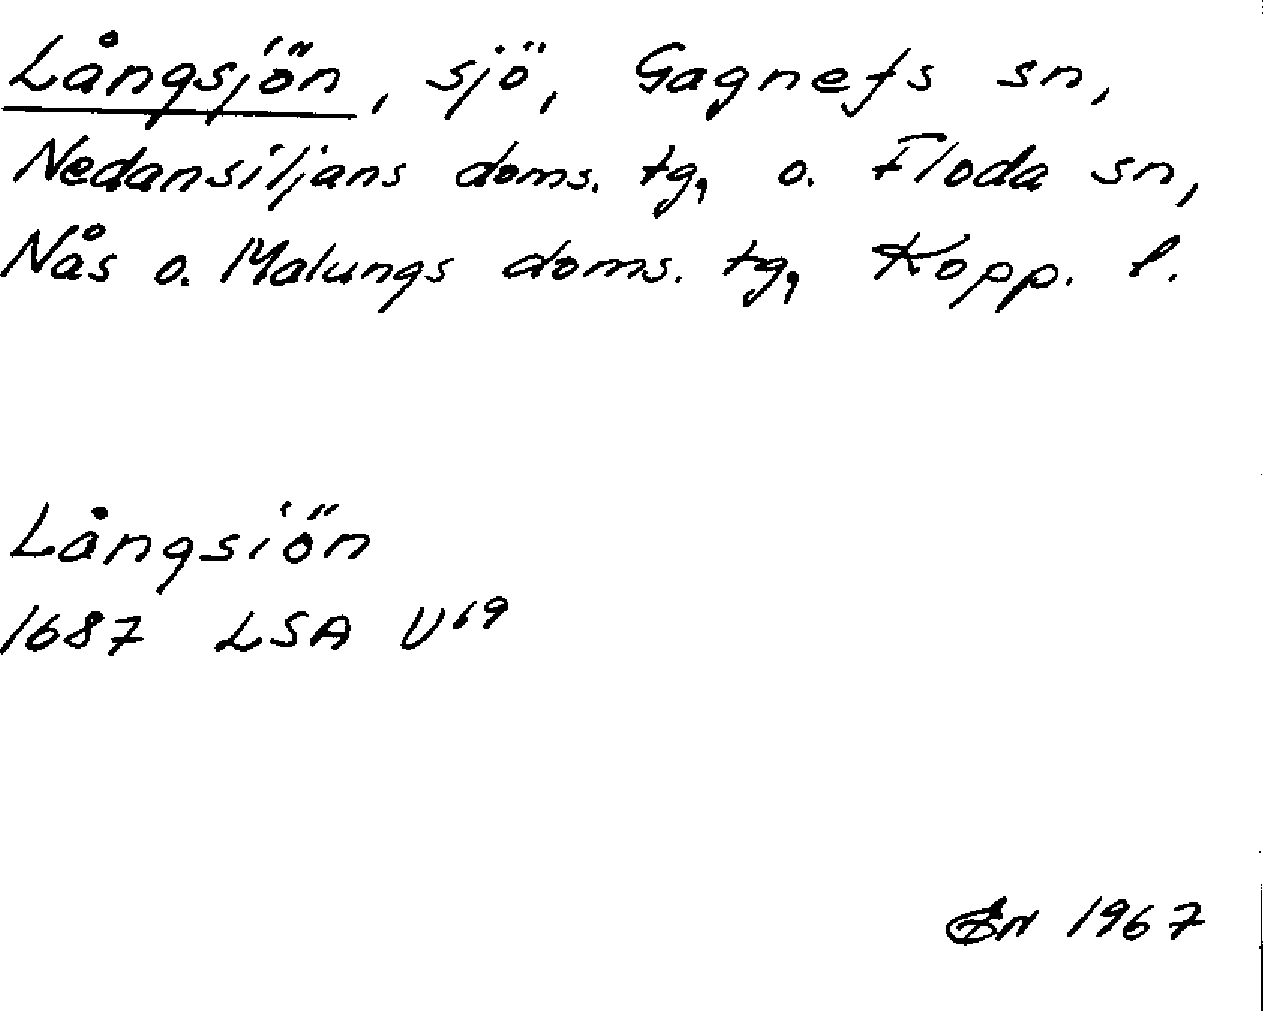 Långsjön, sjö, Gagnefs sn,
Nedansiljans doms. tg, o. Floda sn,
Nås o. Malungs doms. tg, Kopp. l.
Långsiön
1687 LSA U⁶⁹
1967